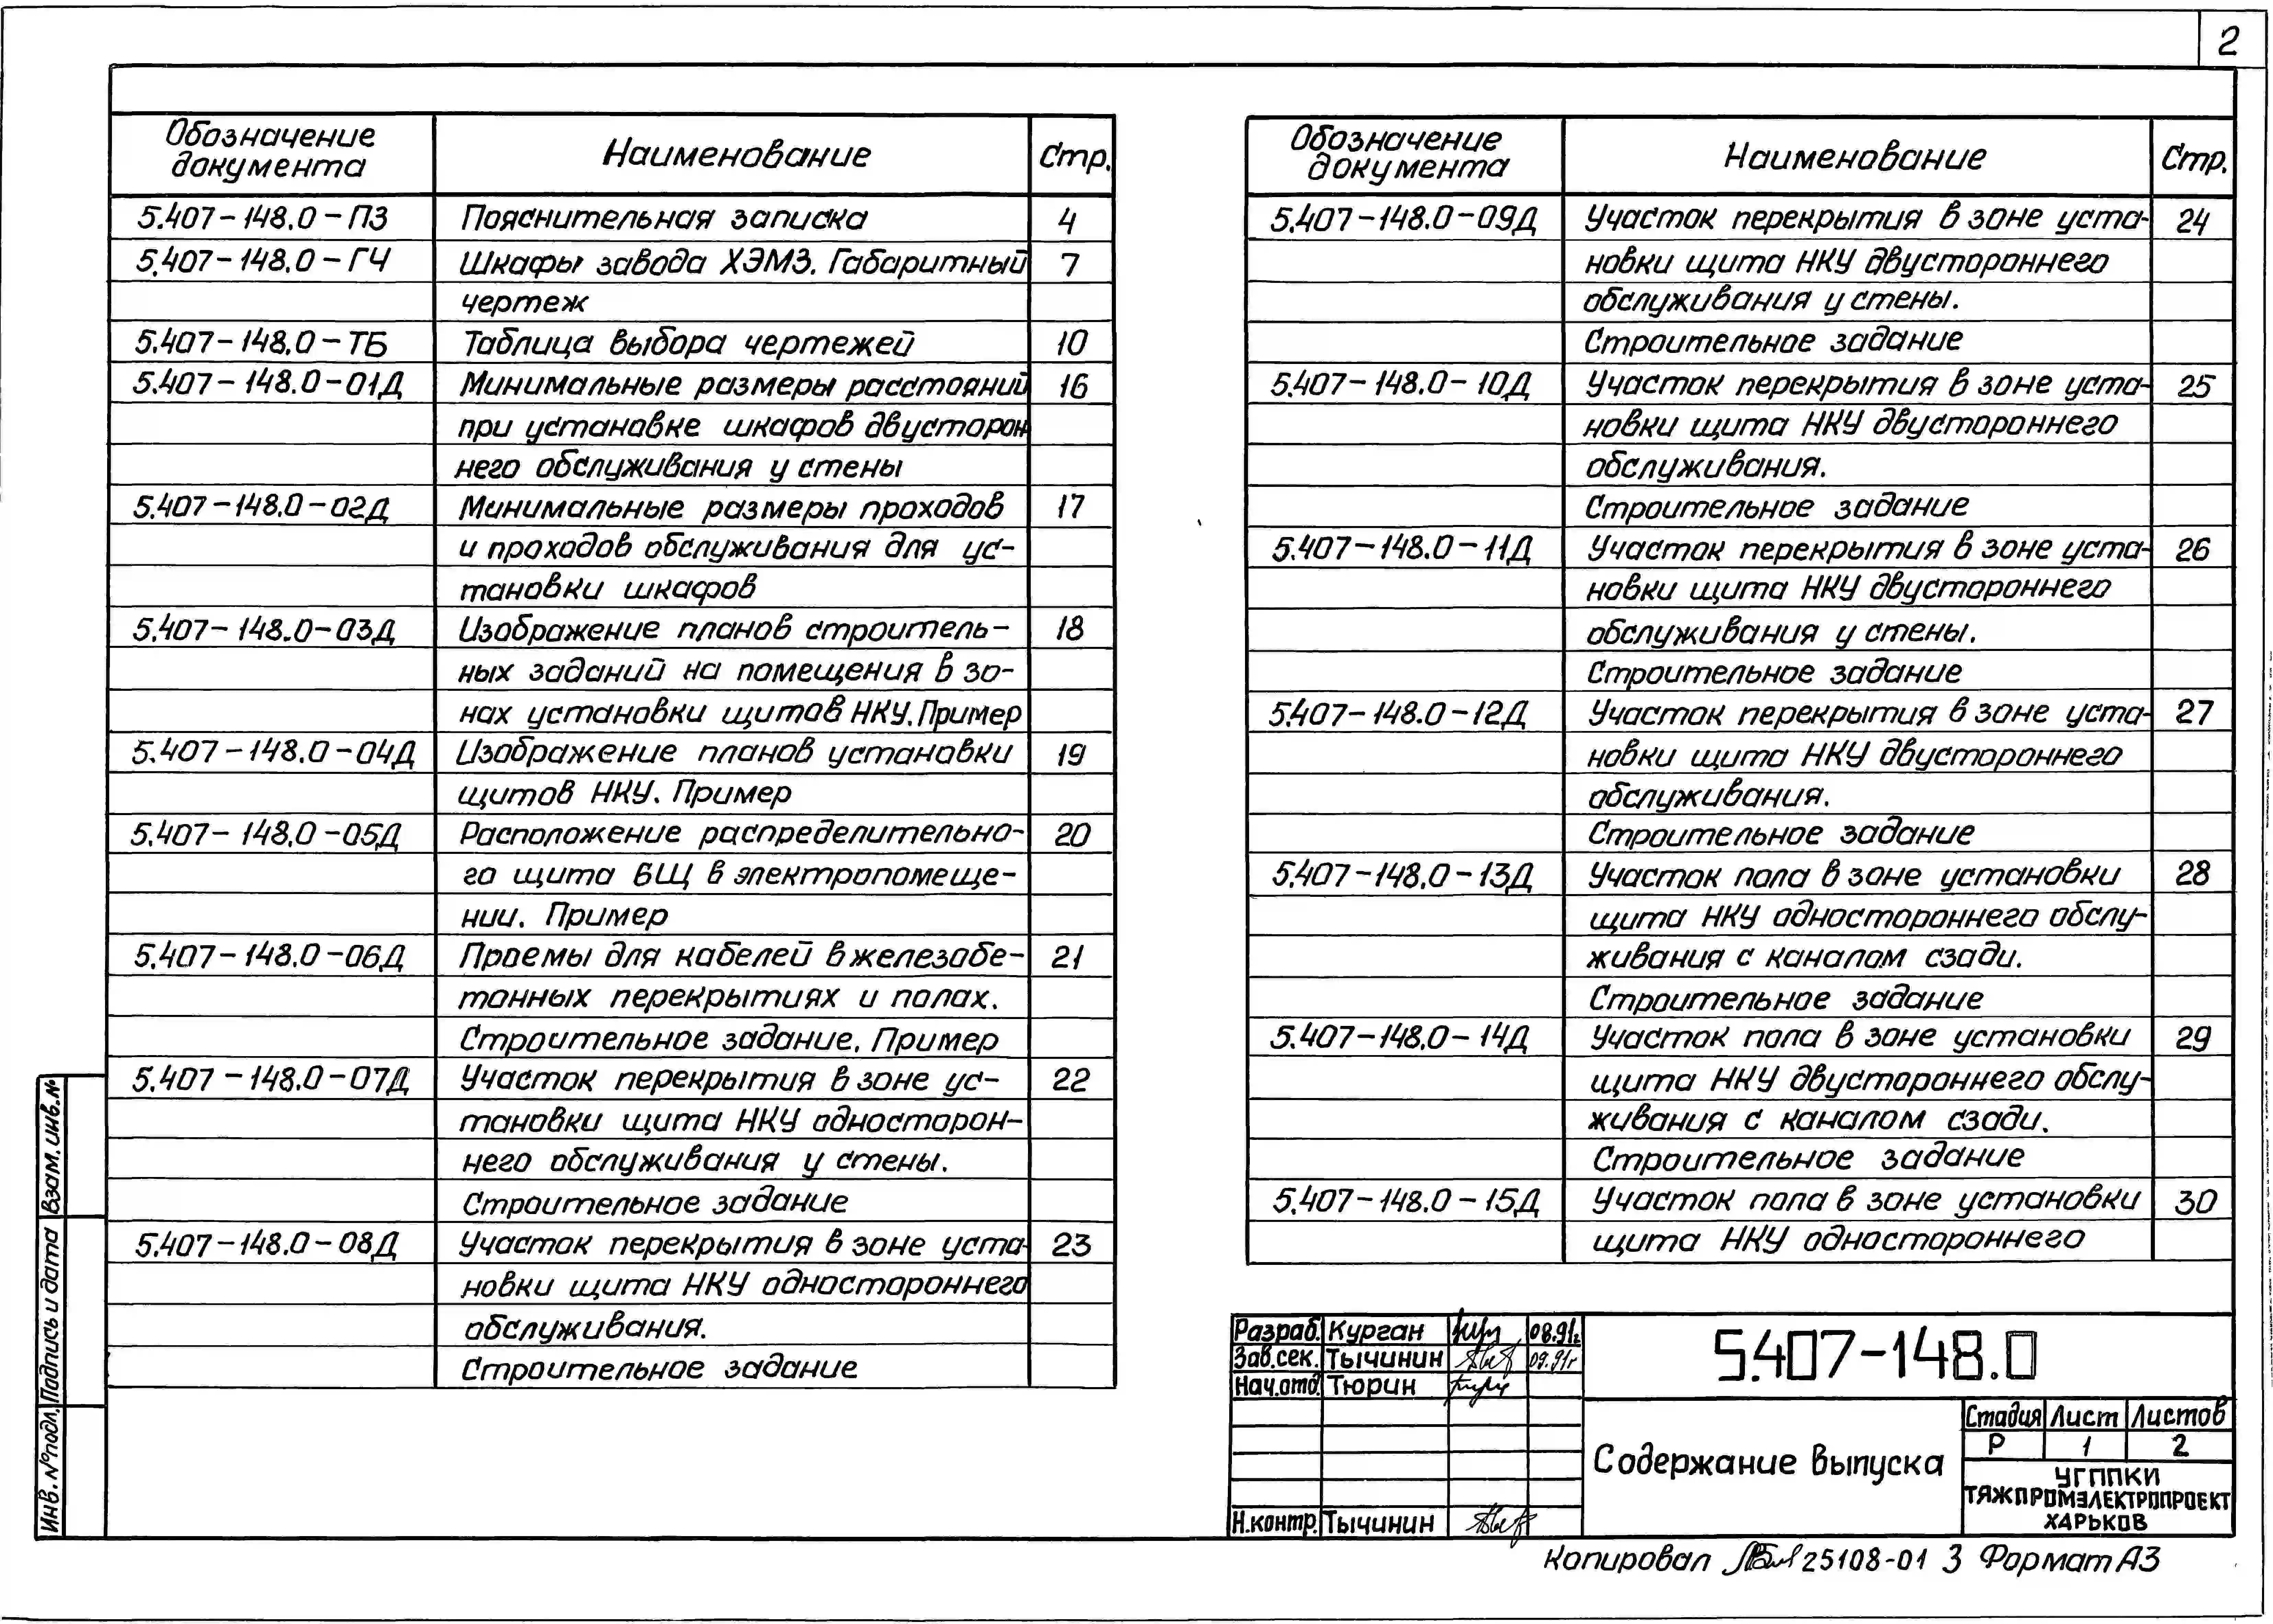 2
Обозначение документа Наименование Стр.
5.407-148.0-ПЗ Пояснительная записка 4
5.407-148.0-ГЧ Шкафы завода ХЭМЗ. Габаритный 7
чертеж
5.407-148.0-ТБ Таблица выбора чертежей 10
5.407-148.0-01Д Минимальные размеры расстояний 16
при установке шкафов двусторон
него обслуживания у стены
5.407-148.0-02Д Минимальные размеры проходов 17
и проходов обслуживания для ус-
тановки шкафов
5.407-148.0-03Д Изображение планов строитель- 18
ных заданий на помещения в зо-
нах установки щитов НКУ. Пример
5.407-148.0-04Д Изображение планов установки 19
щитов НКУ. Пример
5.407-148.0-05Д Расположение распределительно- 20
го щита БЩ в электропомеще-
нии. Пример
5.407-148.0-06Д Проемы для кабелей в железобе- 21
тонных перекрытиях и полах.
Строительное задание. Пример
5.407-148.0-07Д Участок перекрытия в зоне ус- 22
тановки щита НКУ односторон-
него обслуживания у стены.
Строительное задание
5.407-148.0-08Д Участок перекрытия в зоне уста- 23
новки щита НКУ одностороннего
обслуживания.
Строительное задание
Обозначение документа Наименование Стр.
5.407-148.0-09Д Участок перекрытия в зоне уста- 24
новки щита НКУ двустороннего
обслуживания у стены.
Строительное задание
5.407-148.0-10Д Участок перекрытия в зоне уста- 25
новки щита НКУ двустороннего
обслуживания.
Строительное задание
5.407-148.0-11Д Участок перекрытия в зоне уста- 26
новки щита НКУ двустороннего
обслуживания у стены.
Строительное задание
5.407-148.0-12Д Участок перекрытия в зоне уста- 27
новки щита НКУ двустороннего
обслуживания.
Строительное задание
5.407-148.0-13Д Участок пола в зоне установки 28
щита НКУ одностороннего обслу-
живания с каналом сзади.
Строительное задание
5.407-148.0-14Д Участок пола в зоне установки 29
щита НКУ двустороннего обслу-
живания с каналом сзади.
Строительное задание
5.407-148.0-15Д Участок пола в зоне установки 30
щита НКУ одностороннего
Взам. инв. №
Подпись и дата
Инв. № подл.
Разраб. Курган 08.91г.
Зав.сек. Тычинин 09.91г
Нач.отд. Тюрин
Н.контр. Тычинин
5.407-148.0
Содержание выпуска
Стадия Лист Листов
Р 1 2
УГППКИ
ТЯЖПРОМЭЛЕКТРОПРОЕКТ
ХАРЬКОВ
Копировал 25108-01 3 Формат А3